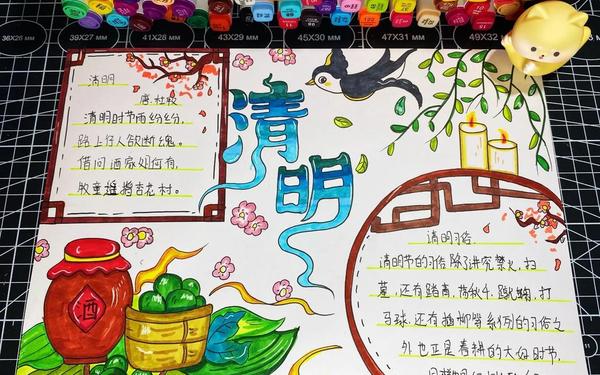 36X26 MM
39X27 MM
41X28 MM
43X29 MM
45X30 MM
47X31 MM
49X32 MM
清明
清明
唐·杜牧
清明时节雨纷纷,
路上行人欲断魂。
借问酒家何何有,
牧童遥指杏花村。
酒
清明习俗.
清明节的习俗除了讲究禁火、扫
墓,还有踏青、荡秋千、蹴鞠、打
马球、还有插柳等系列的习俗之
外也正是春耕的大好时节.